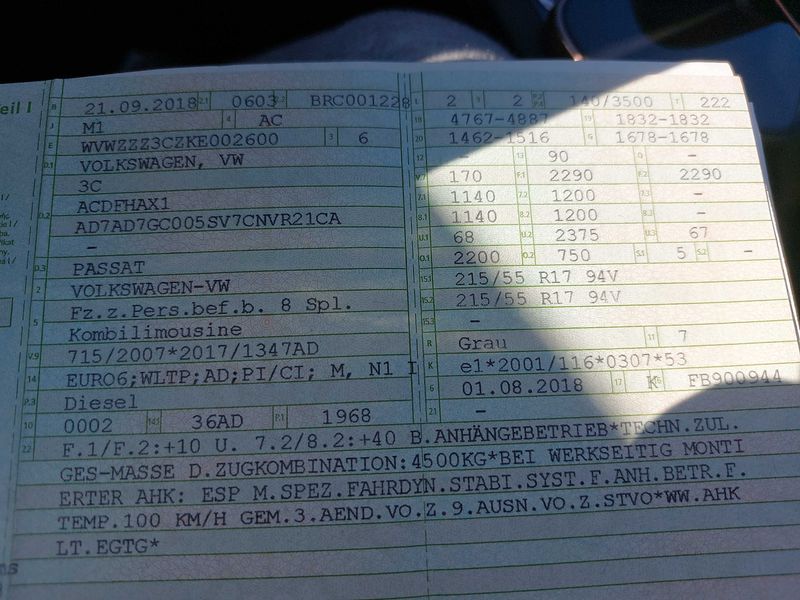 eil I
B 21.09.2018 2.1 0603 2.2 BRC001228
J M1 4 AC
E WVWZZZ3CZKE002600 3 6
D.1 VOLKSWAGEN, VW
3C
D.2 ACDFHAX1
AD7AD7GC005SV7CNVR21CA
–
D.3 PASSAT
2 VOLKSWAGEN-VW
5 Fz.z.Pers.bef.b. 8 Spl.
Kombilimousine
V.9 715/2007*2017/1347AD
14 EURO6;WLTP;AD;PI/CI; M, N1 I
P.3 Diesel
10 0002 14.1 36AD P.1 1968
L 2 9 2 P.2 P.4 140/3500 T 222
18 4767-4887 19 1832-1832
20 1462-1516 G 1678-1678
12 – 13 90 Q –
V.7 170 F.1 2290 F.2 2290
7.1 1140 7.2 1200 7.3 –
8.1 1140 8.2 1200 8.3 –
U.1 68 U.2 2375 U.3 67
O.1 2200 O.2 750 S.1 5 S.2 –
15.1 215/55 R17 94V
15.2 215/55 R17 94V
15.3 –
R Grau 11 7
K e1*2001/116*0307*53
6 01.08.2018 17 K 16 FB900944
21 –
22 F.1/F.2:+10 U. 7.2/8.2:+40 B.ANHÄNGEBETRIEB*TECHN.ZUL.
GES-MASSE D.ZUGKOMBINATION:4500KG*BEI WERKSEITIG MONTI
ERTER AHK: ESP M.SPEZ.FAHRDYN.STABI.SYST.F.ANH.BETR.F.
TEMP.100 KM/H GEM.3.AEND.VO.Z.9.AUSN.VO.Z.STVO*WW.AHK
LT.EGTG*